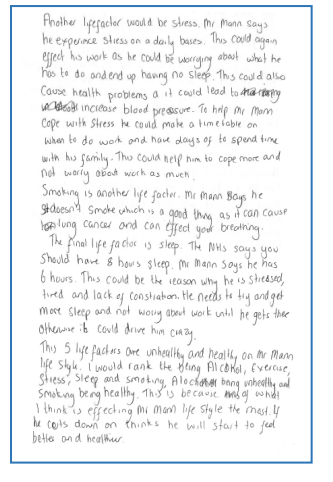 Another lifefactor would be stress. Mr Mann says
he experience stress on a daily bases. This could again
effect his work as he could be worrying about what he
has to do and end up having no sleep. This could also
cause health problems a it could lead to
increase blood pressure. To help Mr Mann
cope with stress he could make a timetable on
when to do work and have days of to spend time
with his family. This could help him to cope more and
not worry about work as much.
Smoking is another life factor. Mr Mann says he
doesn't smoke which is a good thing as it can cause
lung cancer and can effect your breathing.
The final life factor is sleep. The NHS says you
should have 8 hours sleep. Mr Mann says he has
6 hours. This could be the reason why he is stressed,
tired and lack of constration. He needs to try and get
more sleep and not worry about work until he gets there
otherwise it could drive him crazy.
This 5 life factors are unhealthy and healthy on Mr Mann
life style. I would rank the being Alcohol, Exercise,
Stress, Sleep and smoking, Alochol being unhealthy and
Smoking being healthy. This is because of what
I think is effecting Mr Mann life style the most. If
he cuts down on thinks he will start to feel
better and healthier.